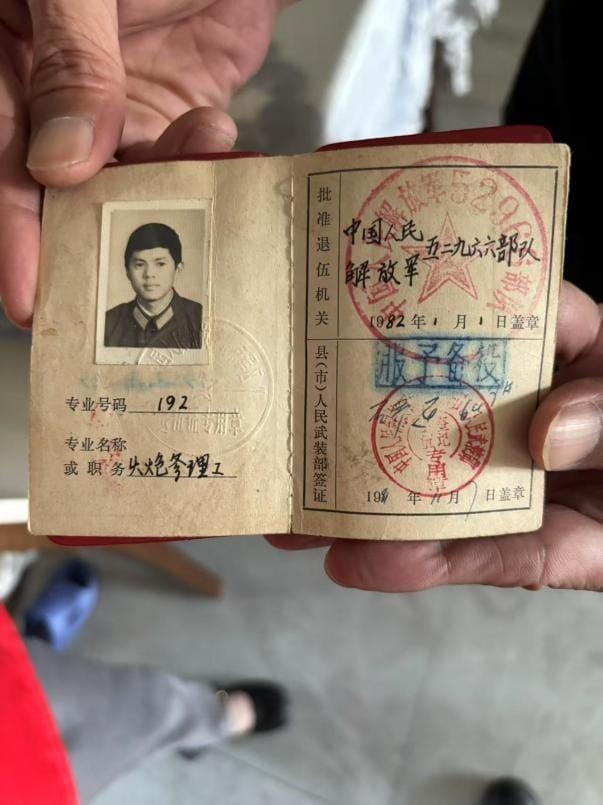 专业号码 192
专业名称
或职务 火炮修理工
批准退伍机关
中国人民
解放军 五二九六六部队
1982年1月1日盖章
县(市)人民武装部签证
服予备役
专用章
年11月7日盖章